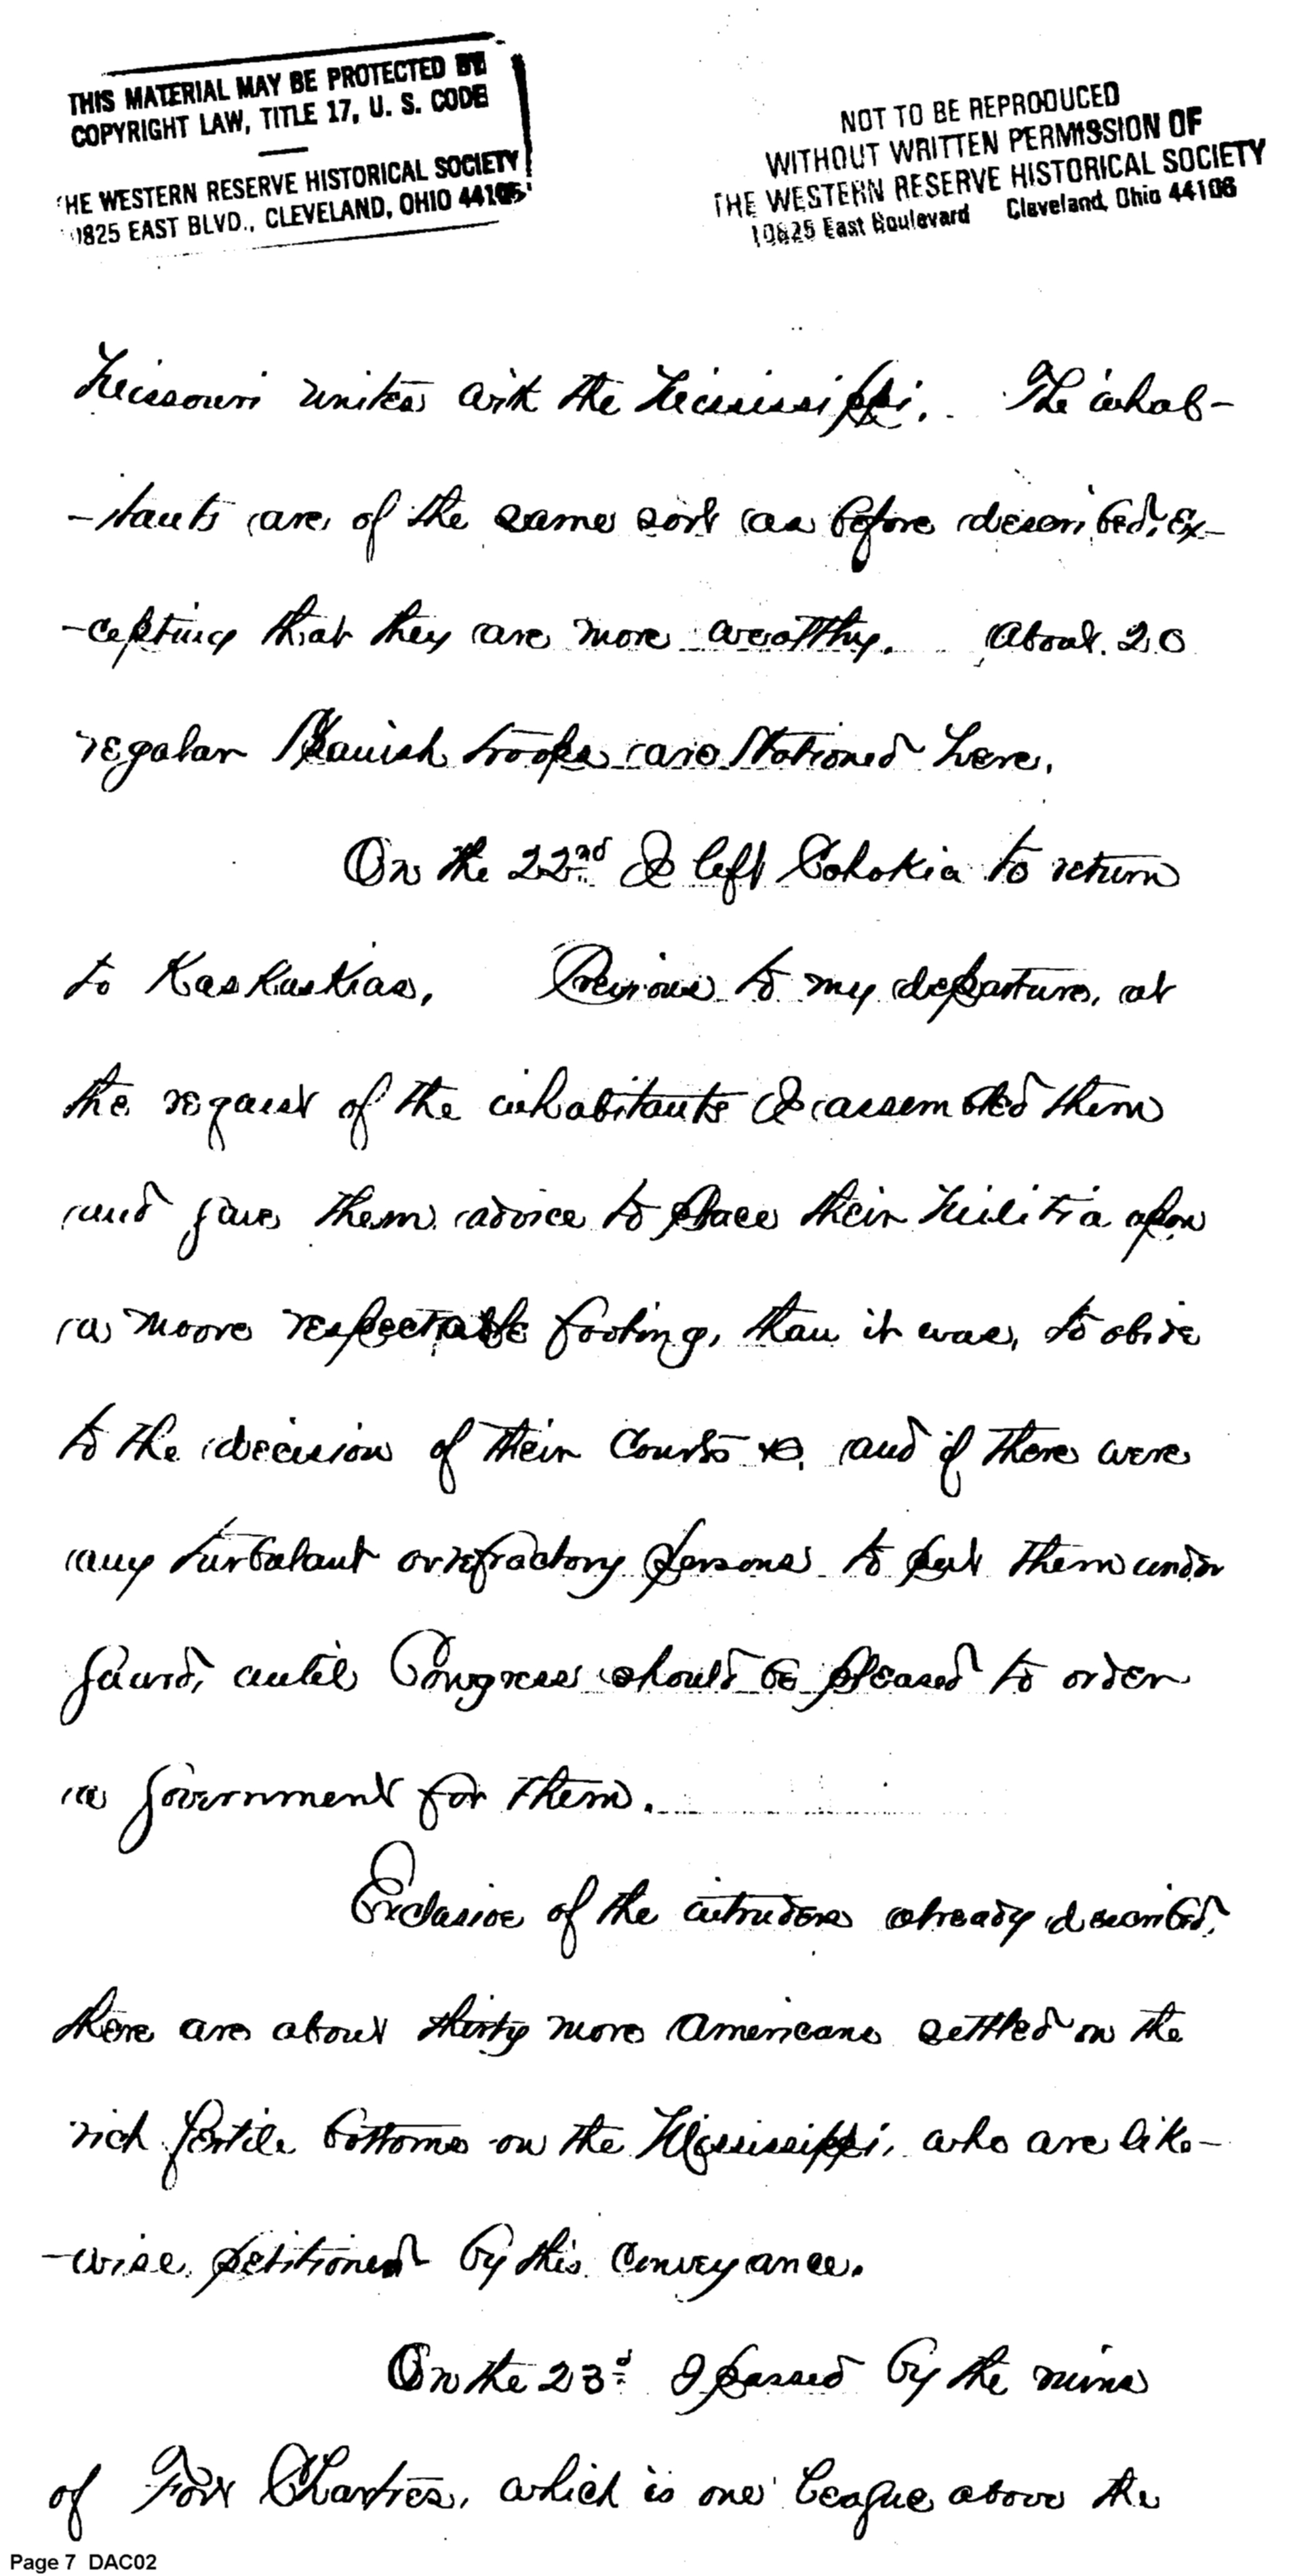 THIS MATERIAL MAY BE PROTECTED BY
COPYRIGHT LAW, TITLE 17, U. S. CODE
THE WESTERN RESERVE HISTORICAL SOCIETY
10825 EAST BLVD., CLEVELAND, OHIO 44106
NOT TO BE REPRODUCED
WITHOUT WRITTEN PERMISSION OF
THE WESTERN RESERVE HISTORICAL SOCIETY
10825 East Boulevard Cleveland, Ohio 44106
Missouri unites with the Missisippi. The inhab-
-itants are of the same sort as before described, Ex-
-cepting that they are more wealthy. About 20
regular Spanish troops are stationed here.
On the 22nd I left Cohokia to return
to Kaskaskias, Previous to my departure, at
the request of the inhabitants I assembled them
and gave them advice to place their Militia upon
a moore respectable footing, than it was, to abide
to the decision of their Courts &c. and if there were
any turbulant or refractory persons to put them under
guard, until Congress should be pleased to order
a government for them.
Exclusive of the intruders already described,
there are about thirty more Americans settled on the
rich fertile bottoms on the Mississippi, who are like-
-wise petitioned by this conveyance.
On the 23d I passed by the ruins
of Fort Chartres, which is one league above the
Page 7 DAC02